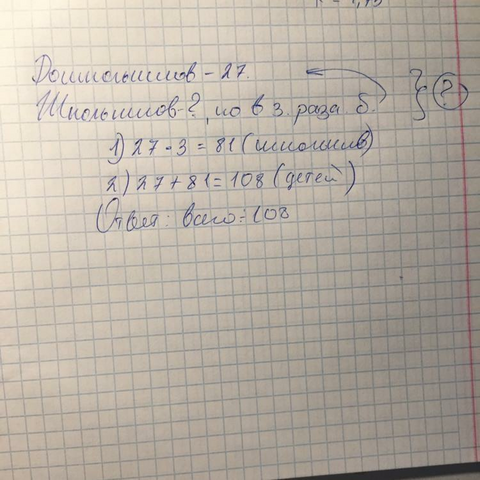 Дошкольников - 27.
Школьников - ?, но в 3 раза б. } ?
1) 27 · 3 = 81 (школьник)
2) 27 + 81 = 108 (детей)
Ответ: всего: 108